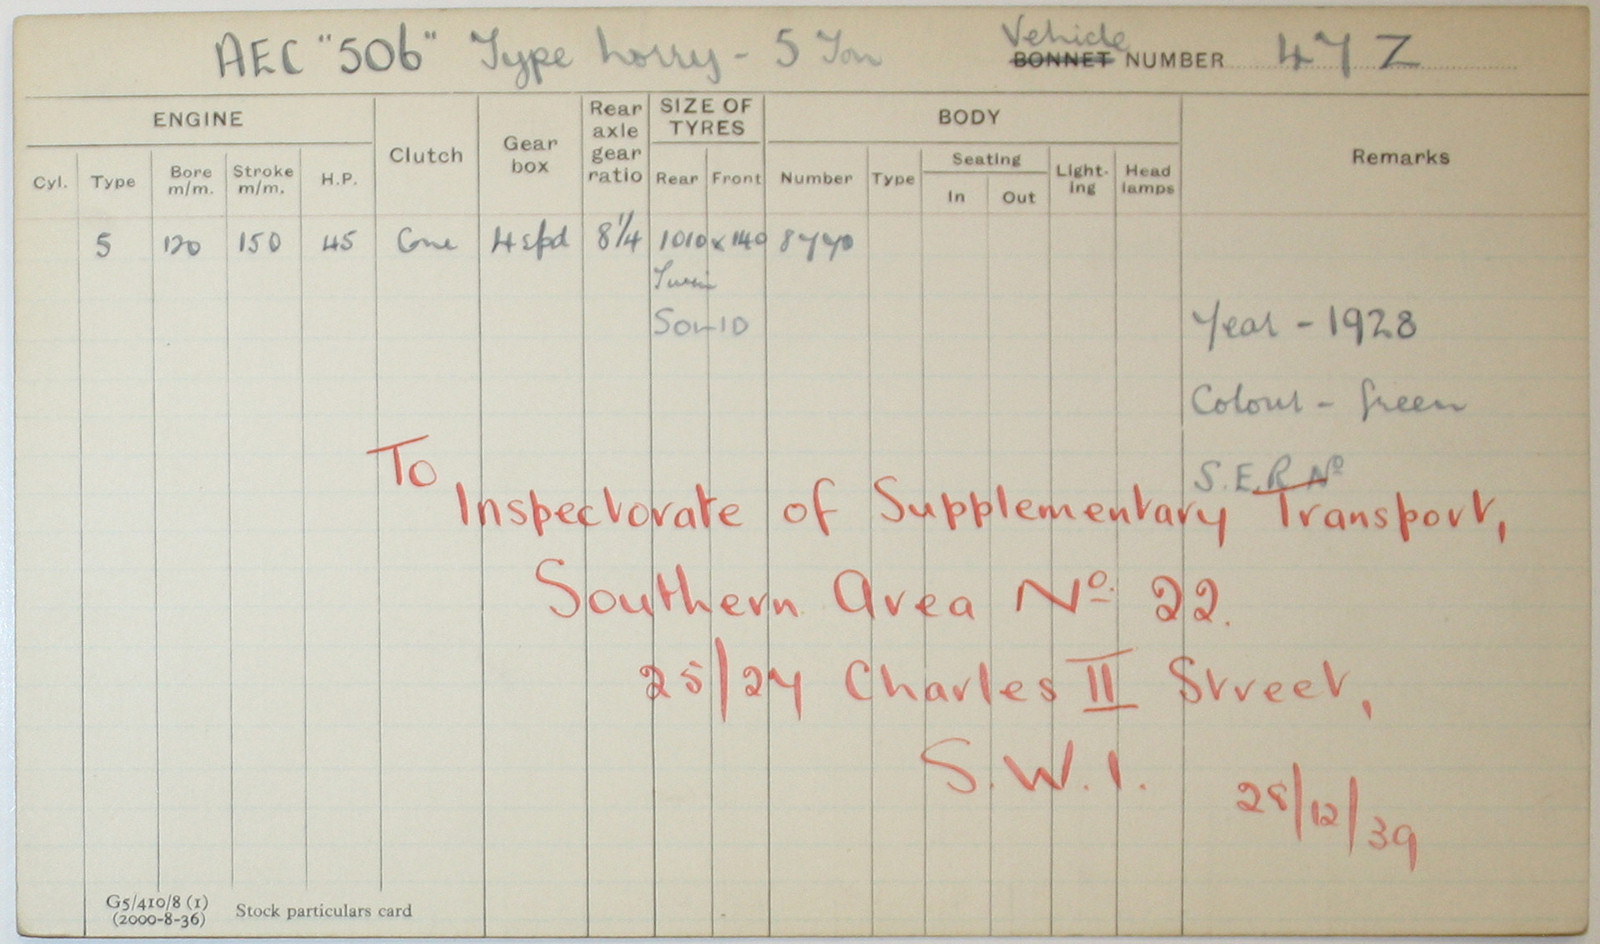 AEC "506" Type Lorry - 5 Ton Vehicle BONNET NUMBER 47 Z
ENGINE Clutch Gear box Rear axle gear ratio SIZE OF TYRES BODY Remarks
Cyl. Type Bore m/m. Stroke m/m. H.P. Rear Front Number Type Seating In Out Light-ing Head lamps
5 120 150 45 Cone 4 spd 8¼ 1010 x 140 8770
Twin
SOLID
Year - 1928
Colour - Green
S.E.R Nº
To
Inspectorate of Supplementary Transport,
Southern Area Nº 22.
25/27 Charles II Street,
S.W.1.
28/12/39
G5/410/8 (1)
(2000-8-36) Stock particulars card